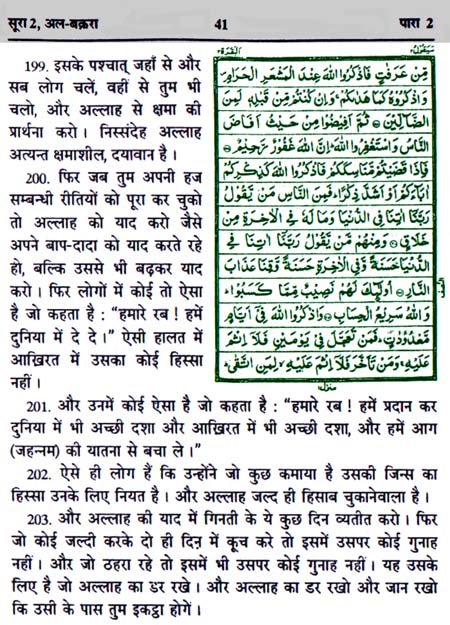 सूरा 2, अल-बक़रा 41 पारा 2
سيقول٢ البقرة٢
199. इसके पश्चात् जहाँ से और
सब लोग चलें, वहीं से तुम भी
चलो, और अल्लाह से क्षमा की
प्रार्थना करो। निस्संदेह अल्लाह
अत्यन्त क्षमाशील, दयावान है।
200. फिर जब तुम अपनी हज
सम्बन्धी रीतियों को पूरा कर चुको
तो अल्लाह को याद करो जैसे
अपने बाप-दादा को याद करते रहे
हो, बल्कि उससे भी बढ़कर याद
करो। फिर लोगों में कोई तो ऐसा
है जो कहता है : “हमारे रब! हमें
दुनिया में दे दे।” ऐसी हालत में
आख़िरत में उसका कोई हिस्सा
नहीं।
مِّنْ عَرَفٰتٍ فَاذْكُرُوا اللّٰهَ عِنْدَ الْمَشْعَرِ الْحَرَامِ
وَاذْكُرُوْهُ كَمَا هَدٰىكُمْ وَاِنْ كُنْتُمْ مِّنْ قَبْلِهٖ لَمِنَ
الضَّآلِّيْنَ ۝ ثُمَّ اَفِيْضُوْا مِنْ حَيْثُ اَفَاضَ
النَّاسُ وَاسْتَغْفِرُوا اللّٰهَ اِنَّ اللّٰهَ غَفُوْرٌ رَّحِيْمٌ ۝
فَاِذَا قَضَيْتُمْ مَّنَاسِكَكُمْ فَاذْكُرُوا اللّٰهَ كَذِكْرِكُمْ
اٰبَآءَكُمْ اَوْ اَشَدَّ ذِكْرًا فَمِنَ النَّاسِ مَنْ يَّقُوْلُ
رَبَّنَآ اٰتِنَا فِى الدُّنْيَا وَمَا لَهٗ فِى الْاٰخِرَةِ مِنْ
خَلَاقٍ ۝ وَمِنْهُمْ مَّنْ يَّقُوْلُ رَبَّنَآ اٰتِنَا فِى
الدُّنْيَا حَسَنَةً وَّفِى الْاٰخِرَةِ حَسَنَةً وَّقِنَا عَذَابَ
النَّارِ ۝ اُولٰٓئِكَ لَهُمْ نَصِيْبٌ مِّمَّا كَسَبُوْا
وَاللّٰهُ سَرِيْعُ الْحِسَابِ ۝ وَاذْكُرُوا اللّٰهَ فِىْٓ اَيَّامٍ
مَّعْدُوْدٰتٍ فَمَنْ تَعَجَّلَ فِىْ يَوْمَيْنِ فَلَآ اِثْمَ
عَلَيْهِ وَمَنْ تَاَخَّرَ فَلَآ اِثْمَ عَلَيْهِ لِمَنِ اتَّقٰى
201. और उनमें कोई ऐसा है जो कहता है : “हमारे रब! हमें प्रदान कर
दुनिया में भी अच्छी दशा और आख़िरत में भी अच्छी दशा, और हमें आग
(जहन्नम) की यातना से बचा ले।”
202. ऐसे ही लोग हैं कि उन्होंने जो कुछ कमाया है उसकी जिन्स का
हिस्सा उनके लिए नियत है। और अल्लाह जल्द ही हिसाब चुकानेवाला है।
203. और अल्लाह की याद में गिनती के ये कुछ दिन व्यतीत करो। फिर
जो कोई जल्दी करके दो ही दिन में कूच करे तो इसमें उसपर कोई गुनाह
नहीं। और जो ठहरा रहे तो इसमें भी उसपर कोई गुनाह नहीं। यह उसके
लिए है जो अल्लाह का डर रखे। और अल्लाह का डर रखो और जान रखो
कि उसी के पास तुम इकट्ठा होगें।